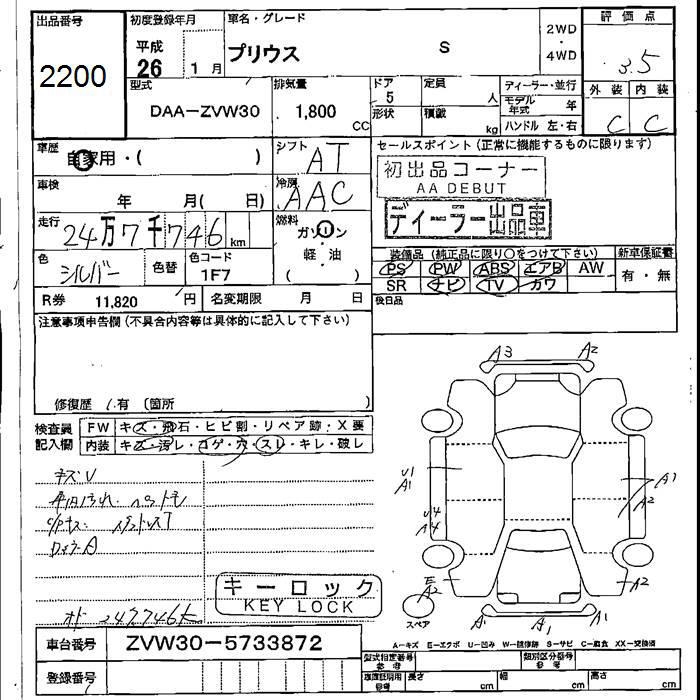 出品番号
2200
初度登録年月
平成
26 1月
車名・グレード
プリウス S
2WD
・
4WD
評価点
3.5
外装 内装
C C
型式
DAA-ZVW30
排気量
1,800 CC
ドア
5
形状
定員
人
積載
kg
ディーラー・並行
モデル年式 年
ハンドル 左・右
車歴
自家用・( )
シフト
AT
セールスポイント(正常に機能するものに限ります)
初出品コーナー
AA DEBUT
ディーラー出品車
車検
年 月( 日)
冷房
AAC
走行
24万7千746km
燃料
ガソリン
軽油
( )
色
シルバー
色替
色コード
1F7
装備品(純正品に限り○をつけて下さい)
PS PW ABS エアB AW
SR ナビ TV カワ
新車保証書
有・無
R券 11,820 円
名変期限 月 日
後日品
注意事項申告欄(不具合内容等は具体的に記入して下さい)
修復歴 1.有 〔箇所
検査員
記入欄
FW キズ・飛石・ヒビ割・リペア跡・X要
内装 キズ・汚レ・コゲ・穴・スレ・キレ・破レ
キズU
キーロック
KEY LOCK
オド 247746K
A3 A2
U1
A1
A1
A2
U4
A4
E
A2
A2
スペア
A1 A1 A1
車台番号 ZVW30-5733872
登録番号
A-キズ E-エクボ U-凹み W-補修跡 S-サビ C-腐食 XX-交換済
型式指定番号
参考
類別区分番号
参考
車庫証明用
参考
長さ cm
幅 cm
高さ cm